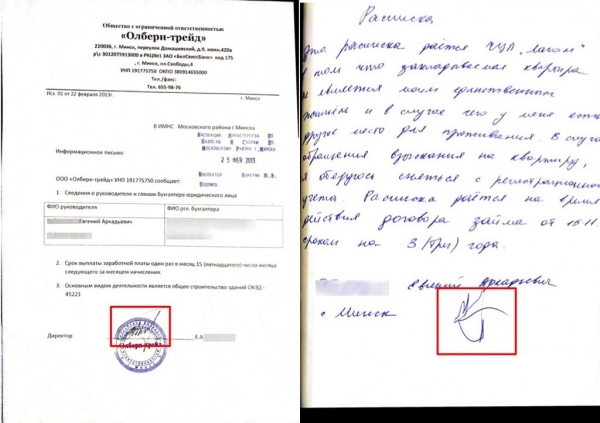 Общество с ограниченной ответственностью
«Олбери-трейд»
220036, г. Минск, переулок Домашевский, д.9, комн.420а
р\с 3012075913000 в РКЦ№1 ЗАО «БелСвиссБанк» код 175
, г. Минск, пл.Свободы,4
УНП 191775750 ОКПО 380914655000
Тел./факс:
Тел. 655-98-76
Исх. 01 от 22 февраля 2013г.
г. Минск
В ИМНС Московского района г.Минска
Инспекция Министерства по
налогам и сборам по
Московскому району г.Минска
25 ФЕВ 2013
Информационное письмо
Инспектор
Подпись
ООО «Олбери-трейд» УНП 191775750 сообщает:
1. Сведения о руководителе и главном бухгалтере юридического лица
ФИО руководителя
ФИО бухгалтера
Евгений Аркадьевич
2. Срок выплаты заработной платы один раз в месяц 15 (пятнадцатого) числа месяца
следующего за месяцем начисления.
3. Основным видом деятельности является общее строительство зданий ОКЭД -
45221
Директор
Е.А.
Олбери-трейд
Расписка
расписка даётся ЧУП "Лагом"
в том что закладываемая квартира
не является моим единственным
жильём и в случае чего у меня есть
другое место для проживания. В случае
обращения взыскания на квартиру,
я обязуюсь сняться с регистрационного
учета. Расписка даётся на время
действия договора займа от 15.11.
сроком на 3 (три) года.
Евгений Аркадьевич
г. Минск